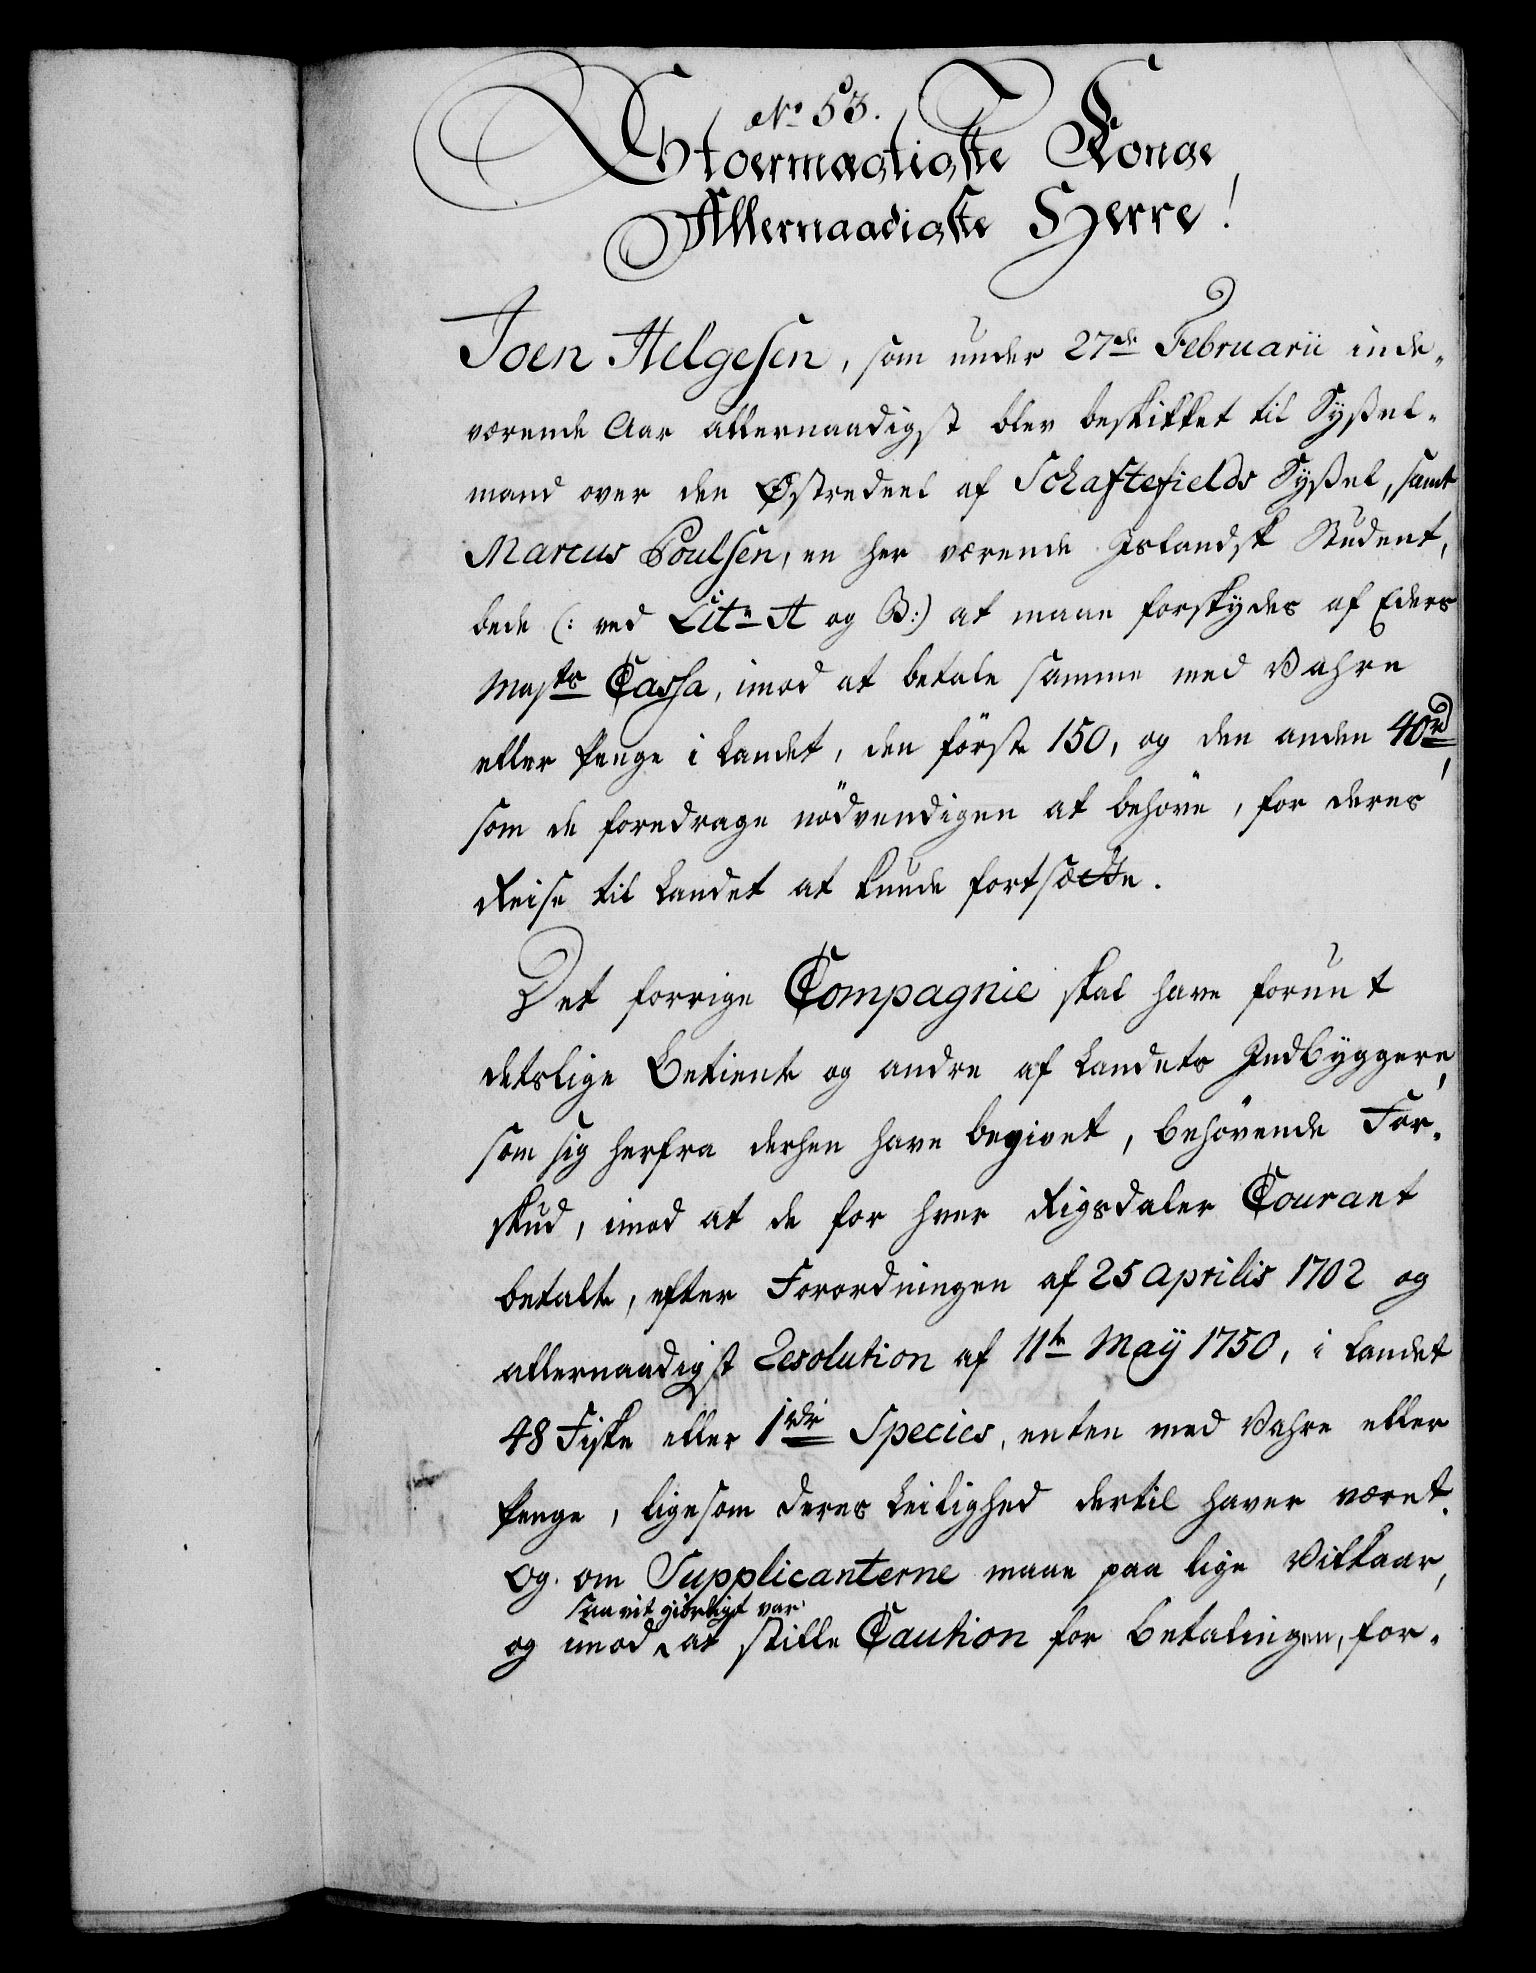 No 53.
Stormægtigste Konge
Allernaadigste Herre!
Joen Helgesen, som under 27de Februarii inde-
værende Aar allernaadigst blev beskikket til Syssel-
mand over den Østredeel af Schaftefields Syssel, samt
Marcus Poulsen, en her værende Islandsk Student,
bede (: ved Litr A og B:) at maae forskydes af Eders
Majts Cassa, imod at betale samme med Vahre
eller Penge i Landet, den förste 150, og den anden 40rd,
som de foredrage nödvendigen at behöve, for deres
Reise til Landet at kunde fortsætte.
Det forrige Compagnie skal have forunt
deslige Betiente og andre af Landets Indbyggere,
som sig herfra derhen have begivet, behövende For-
skud, imod at de for hver Rigsdaler Courant
betalte, efter Forordningen af 25 Aprilis 1702 og
allernaadigst Resolution af 11te Maÿ 1750, i Landet
48 Fiske eller 1rdr Species, enten med Vahre eller
Penge, ligesom deres Leilighed dertil haver været.
Og om Supplicanterne maae paa lige Vilkaar,
saavit giörligt var
og imod at stille Caution for Betalingen, for-